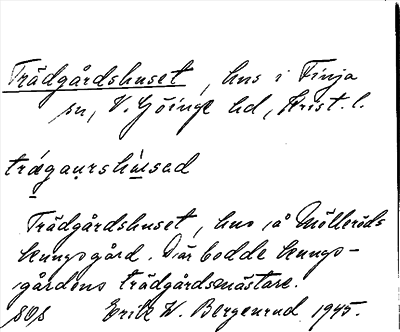 Trädgårdshuset, hus i Finja
sn, V. Göinge hd, Krist. l.
trǽgaurshúsad
Trädgårdshuset, hus å Mölleröds
kungsgård. Där bodde kungs-
gårdens trädgårdsmästare.
Erik W. Bergenrud 1945.